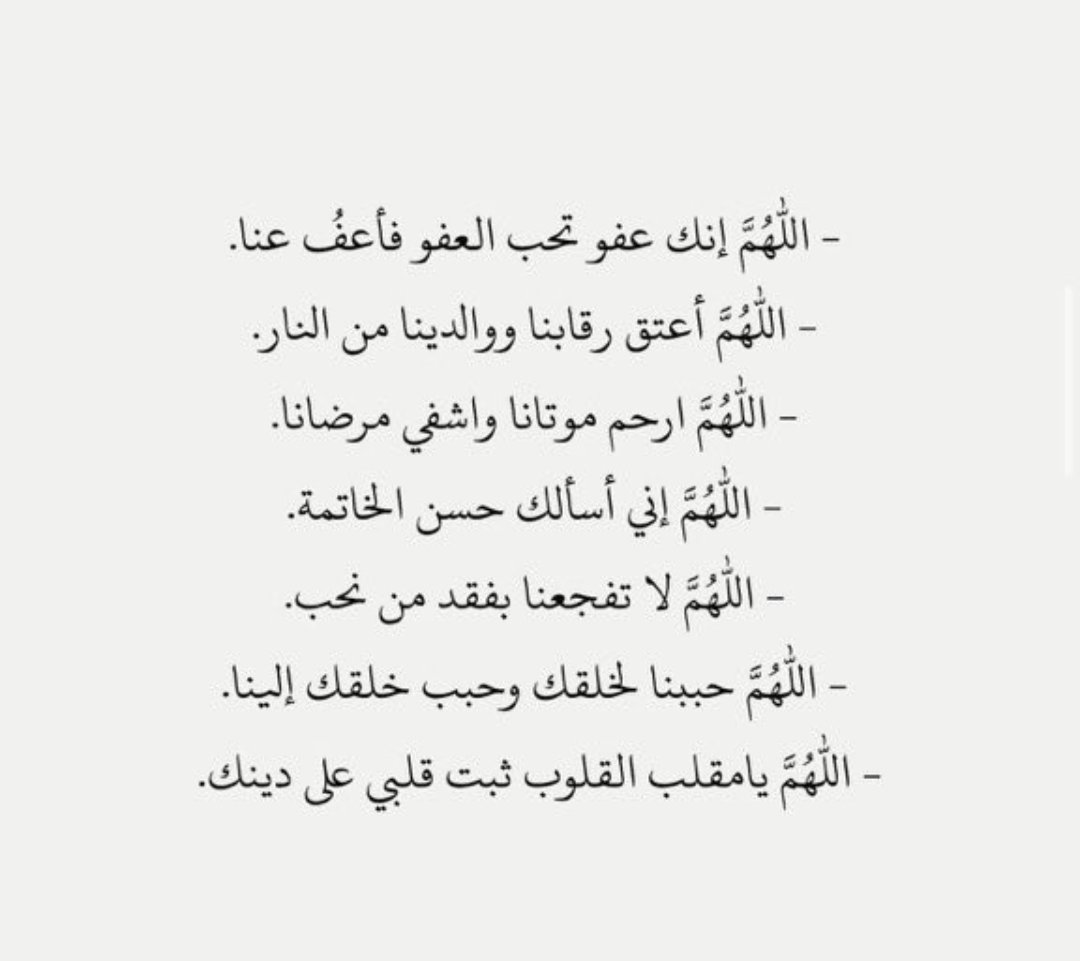 - اللّٰهُمَّ إنك عفو تحب العفو فأعفُ عنا.
- اللّٰهُمَّ أعتق رقابنا ووالدينا من النار.
- اللّٰهُمَّ ارحم موتانا واشفي مرضانا.
- اللّٰهُمَّ إني أسألك حسن الخاتمة.
- اللّٰهُمَّ لا تفجعنا بفقد من نحب.
- اللّٰهُمَّ حببنا لخلقك وحبب خلقك إلينا.
- اللّٰهُمَّ يامقلب القلوب ثبت قلبي على دينك.